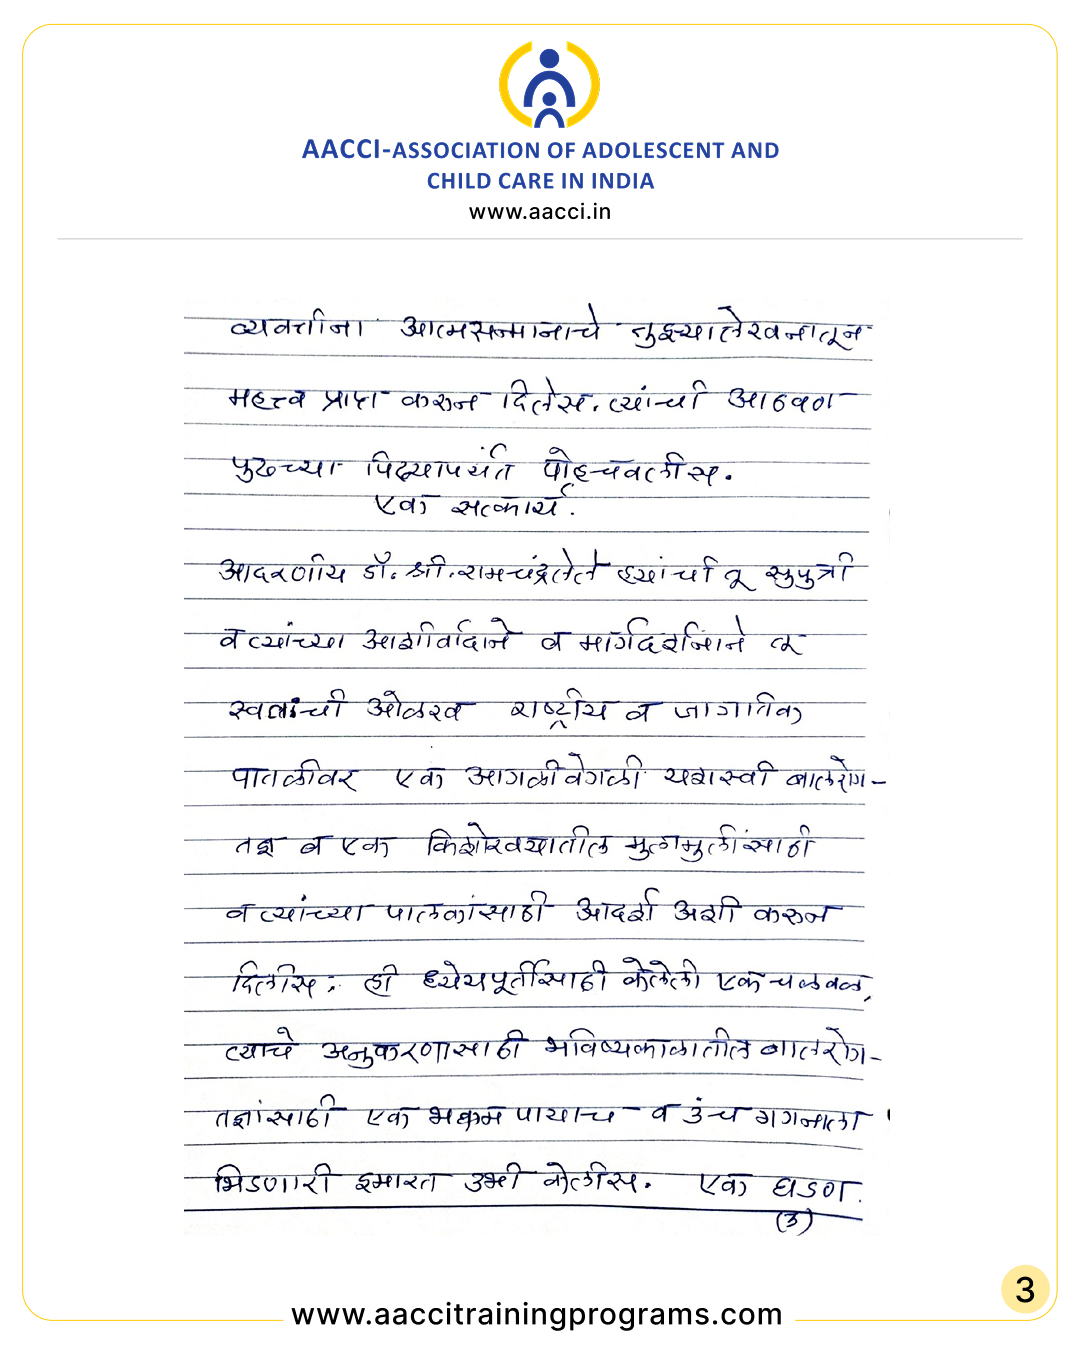 AACCI-ASSOCIATION OF ADOLESCENT AND
CHILD CARE IN INDIA
www.aacci.in
व्यक्तींना आत्मसन्मानाचे तुझ्या लेखनातून
महत्त्व प्राप्त करून दिलेस. त्यांची आठवण
पुढच्या पिढ्यापर्यंत पोहचवलीस.
एक सत्कार्य.
आदरणीय डॉ. श्री. रामचंद्र लेले ह्यांची तू सुपुत्री
व त्यांच्या आशीर्वादाने व मार्गदर्शनाने तू
स्वतःची ओळख राष्ट्रीय व जागतिक
पातळीवर एक आगळीवेगळी यशस्वी बालरोग-
तज्ञ व एक किशोरवयातील मुलामुलींसाठी
व त्यांच्या पालकांसाठी आदर्श अशी करून
दिलीस; ही ध्येयपूर्तीसाठी केलेली एक चळवळ,
त्याचे अनुकरणासाठी भविष्यकाळातील बालरोग-
तज्ञांसाठी एक भक्कम पायाच व उंच गगनाला
भिडणारी इमारत उभी केलीस. एक घडण.
(3)
3
www.aaccitrainingprograms.com